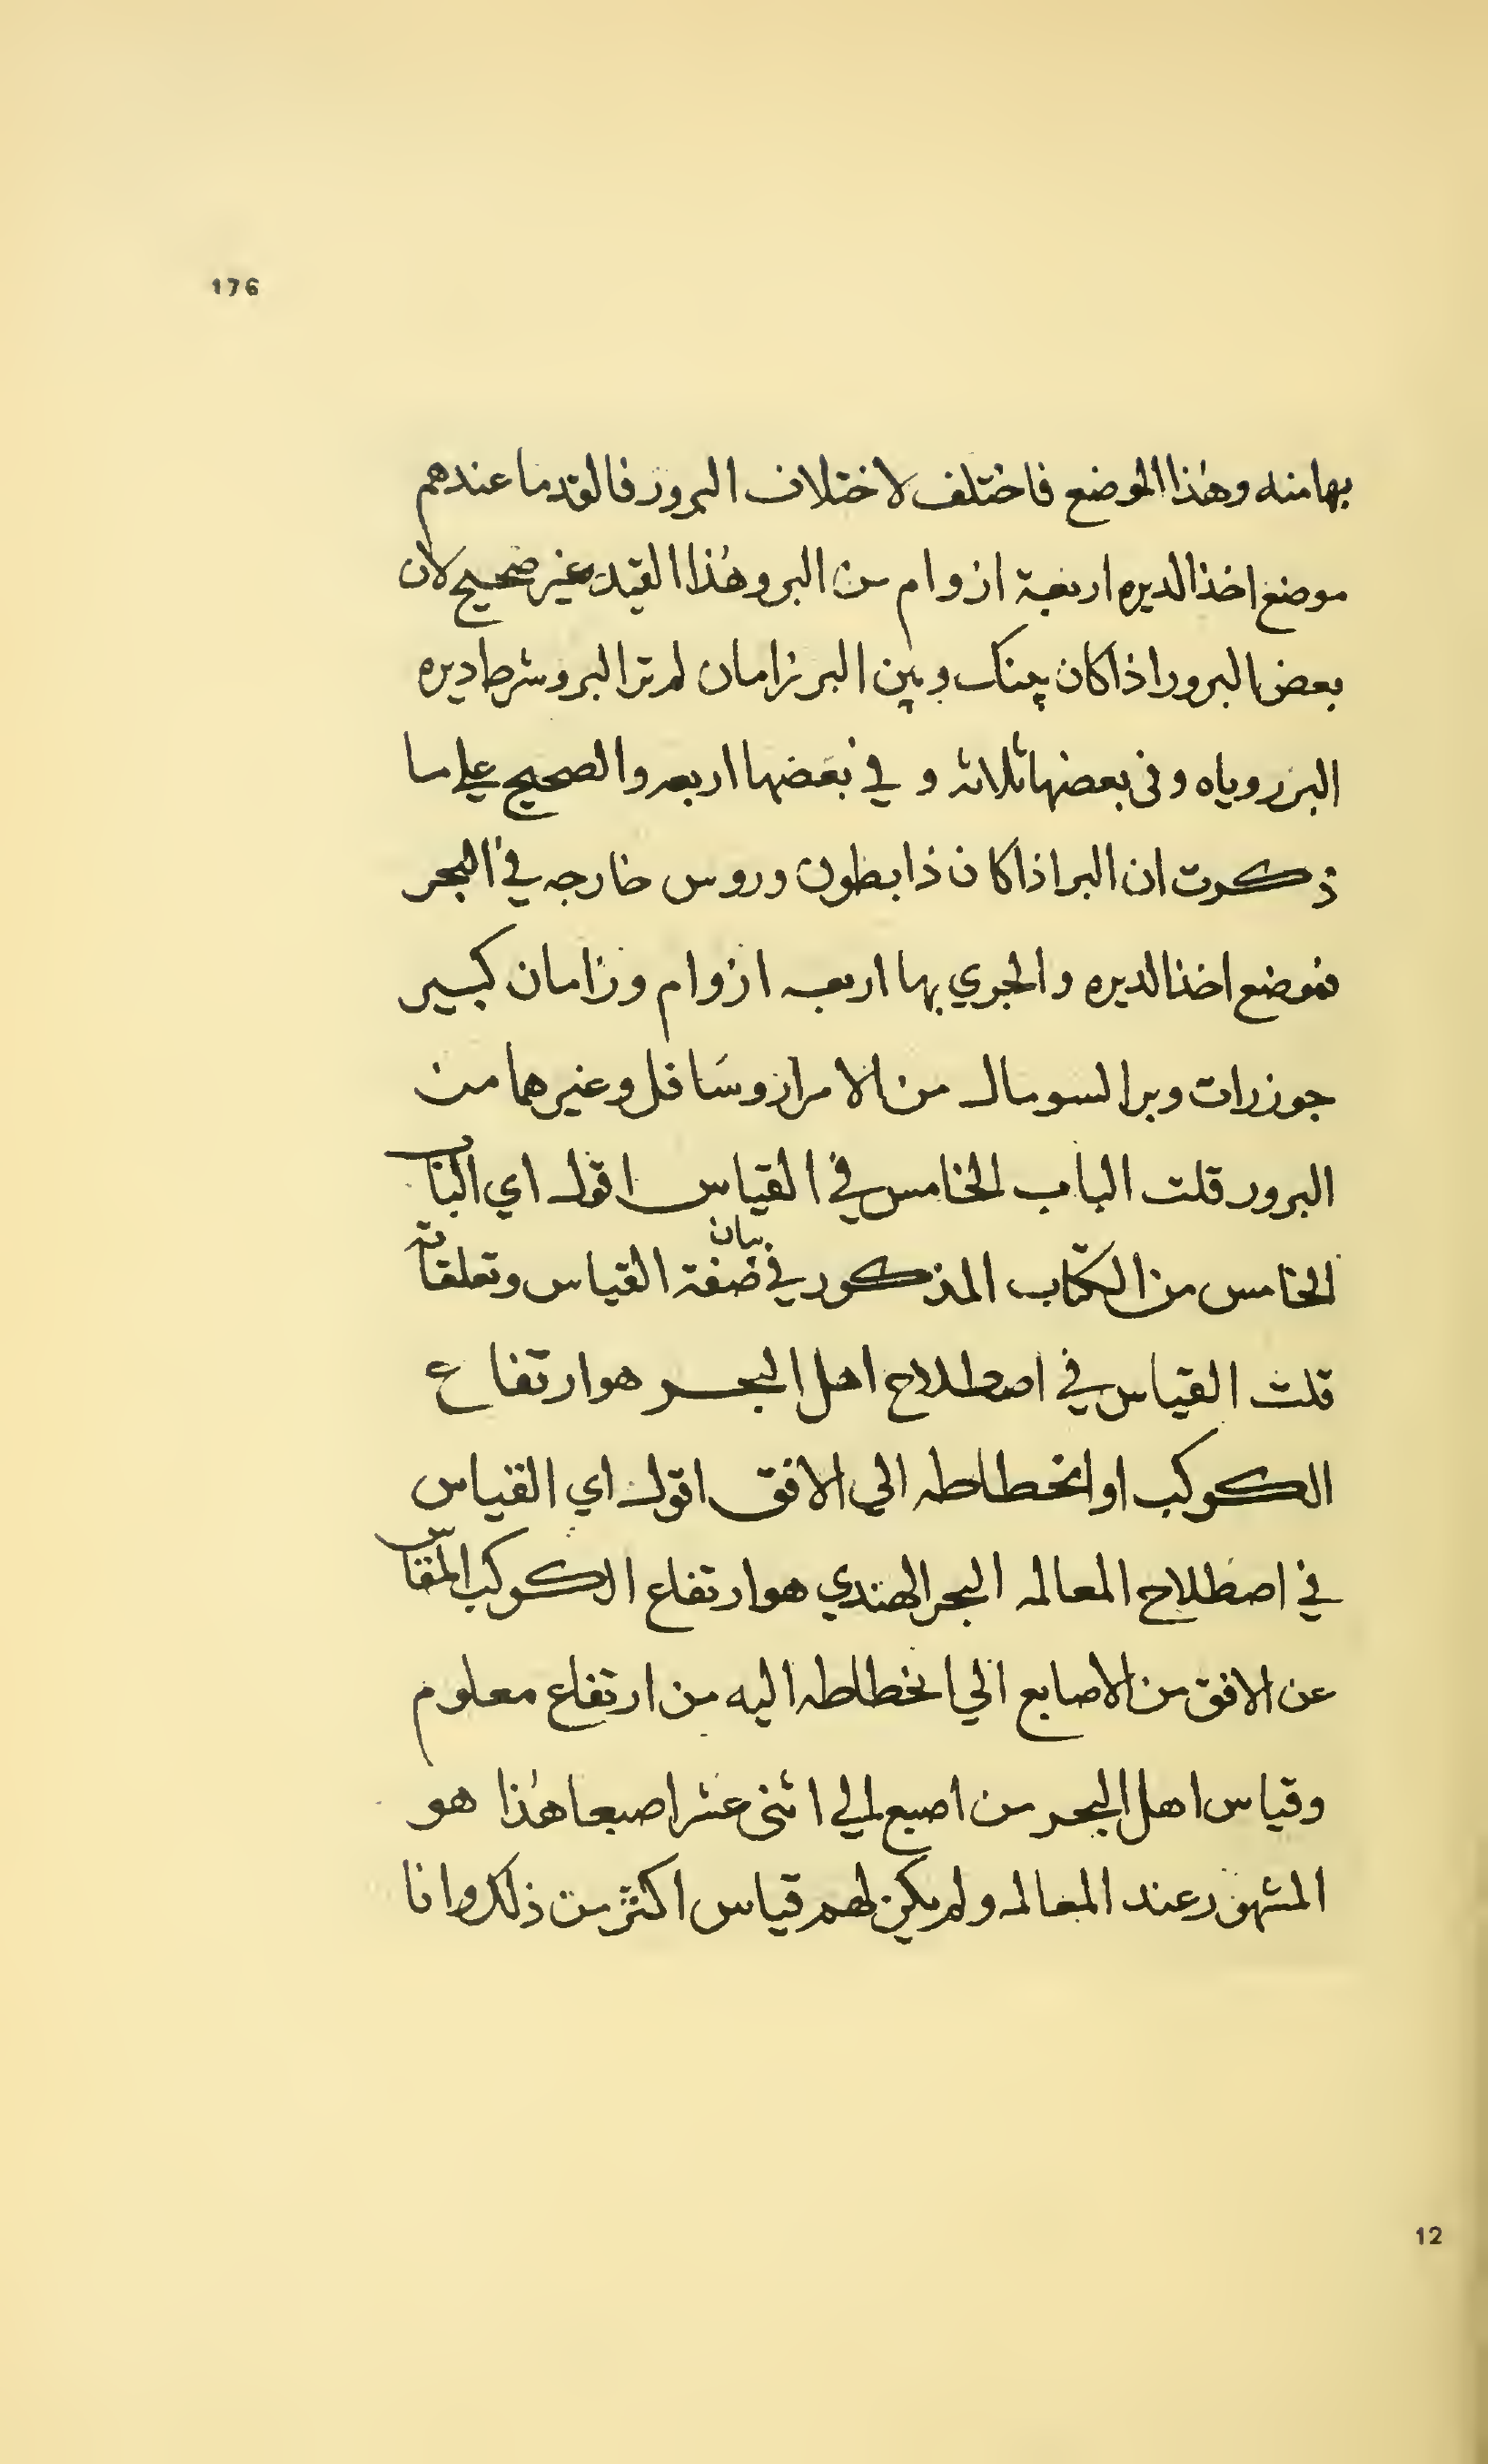 176
بها منه وهذا الموضع فاختلف لاختلاف البرور فالقدما عندهم
موضع اخذ الديره اربعة ازوام من البر وهذا القيد غير صحيح لان
بعض البرور اذا كان بينك وبين البر زامان لم تر البر وشرط ديره
البر روياه وفى بعضها ثلاثه و في بعضها اربعه والصحيح علي ما
ذكرت ان البر اذا كان ذا بطون وروس خارجه في البحر
فموضع اخذ الديره والجري بها اربعه ازوام وزامان كبير
جوزرات وبر السومال من الامرار وسافل وغيرهما من
البرور قلت الباب الخامس في القياس اقول اي الباب
الخامس من الكتاب المذكور في بيان صفة القياس وتعلقاته
قلت القياس في اصطلاح اهل البحر هو ارتفاع
الكوكب او انحطاطه الي الافق اقول اي القياس
في اصطلاح المعالمه البحر الهندي هو ارتفاع الكوكب المقاس
عن الافق من الاصابع الي انحطاطه اليه من ارتفاع معلوم
وقياس اهل البحر من اصبع الي اثنى عشر اصبعا هذا هو
المشهور عند المعالمه ولم يكن لهم قياس اكثر من ذلك وانا
12